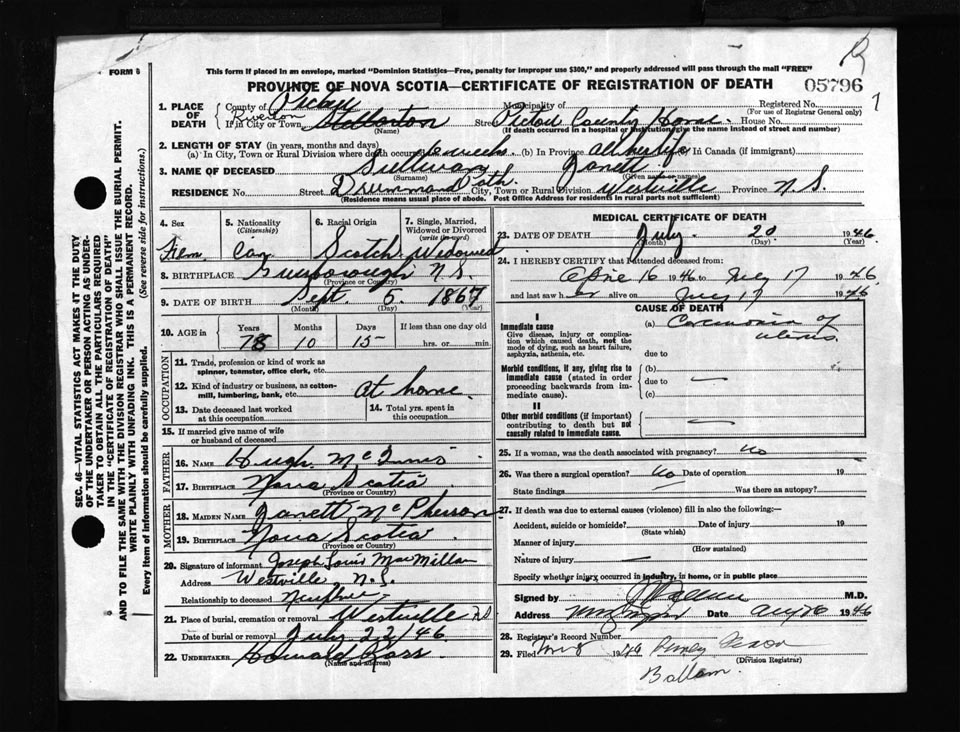 FORM 6
This form if placed in an envelope, marked "Dominion Statistics—Free, penalty for improper use $300," and properly addressed will pass through the mail "FREE"
PROVINCE OF NOVA SCOTIA—CERTIFICATE OF REGISTRATION OF DEATH
05796
1. PLACE OF DEATH County of Pictou Municipality of Registered No.
(For use of Registrar General only)
Riverton If in City or Town Stellarton Street Pictou County Home House No.
(Name) (If death occurred in a hospital or institution, give the name instead of street and number)
2. LENGTH OF STAY (in years, months and days)
(a) In City, Town or Rural Division where death occurred weeks (b) In Province all her life (c) In Canada (if immigrant)
3. NAME OF DECEASED Sullivan Janett
(Surname) (Given name or names)
RESIDENCE No. Street Drummond City, Town or Rural Division Westville Province N.S.
(Residence means usual place of abode. Post Office Address for residents in rural parts not sufficient)
4. Sex Fem
5. Nationality (Citizenship) Can
6. Racial Origin Scotch
7. Single, Married, Widowed or Divorced (write the word) Widowed
8. BIRTHPLACE Guysborough N.S.
(Province or Country)
9. DATE OF BIRTH Sept 5 1867
(Month) (Day) (Year)
10. AGE in Years Months Days If less than one day old
78 10 15 hrs. or min.
OCCUPATION
11. Trade, profession or kind of work as spinner, teamster, office clerk, etc.
12. Kind of industry or business, as cotton-mill, lumbering, bank, etc. At home
13. Date deceased last worked at this occupation
14. Total yrs. spent in this occupation
15. If married give name of wife or husband of deceased
FATHER
16. NAME Hugh McInnis
17. BIRTHPLACE Nova Scotia
(Province or Country)
MOTHER
18. MAIDEN NAME Janett McPherson
19. BIRTHPLACE Nova Scotia
(Province or Country)
20. Signature of informant Joseph Louis MacMillan
Address Westville N.S.
Relationship to deceased
21. Place of burial, cremation or removal Westville N.S
Date of burial or removal July 22/46
22. UNDERTAKER Howard Ross
(Name and address)
MEDICAL CERTIFICATE OF DEATH
23. DATE OF DEATH July 20 1946
(Month) (Day) (Year)
24. I HEREBY CERTIFY that I attended deceased from:
April 16 1946 to July 17 1946
and last saw her alive on July 17 1946
CAUSE OF DEATH
I
Immediate cause
Give disease, injury or complication which caused death, not the mode of dying, such as heart failure, asphyxia, asthenia, etc.
(a) Carcinoma of uterus
due to
Morbid conditions, if any, giving rise to immediate cause (stated in order proceeding backwards from immediate cause).
(b)
due to
(c)
II
Other morbid conditions (if important) contributing to death but not causally related to immediate cause.
25. If a woman, was the death associated with pregnancy? No
26. Was there a surgical operation? No Date of operation 19
State findings Was there an autopsy?
27. If death was due to external causes (violence) fill in also the following:—
Accident, suicide or homicide? Date of injury 19
(State which)
Manner of injury
(How sustained)
Nature of injury
Specify whether injury occurred in industry, in home, or in public place
Signed by M.D.
Address Date Aug 1946
28. Registrar's Record Number
29. Filed Aug 1946
(Division Registrar)
SEC. 46—VITAL STATISTICS ACT MAKES IT THE DUTY
OF THE UNDERTAKER OR PERSON ACTING AS UNDER-
TAKER TO OBTAIN ALL THE PARTICULARS REQUIRED
IN THE "CERTIFICATE OF REGISTRATION OF DEATH"
AND TO FILE THE SAME WITH THE DIVISION REGISTRAR WHO SHALL ISSUE THE BURIAL PERMIT.
WRITE PLAINLY WITH UNFADING INK. THIS IS A PERMANENT RECORD.
Every item of information should be carefully supplied. (See reverse side for instructions.)